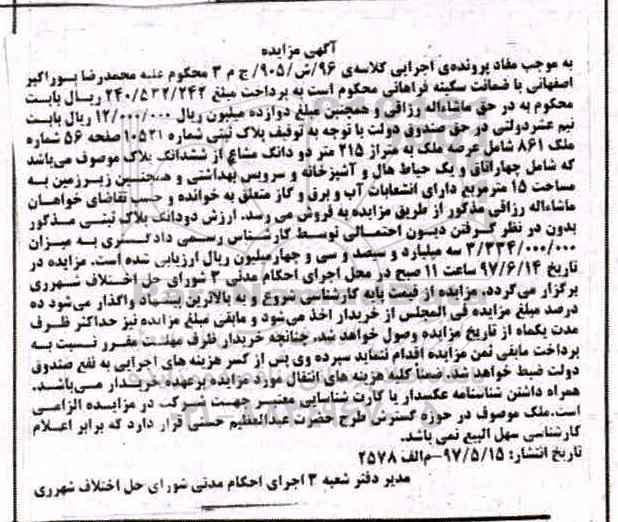 آگهی مزایده
به موجب مفاد پرونده‌ی اجرایی کلاسه‌ی ۹۶/ش/۹۰۵/ ج م ۳ محکوم علیه محمدرضا پوراکبر
اصفهانی با ضمانت سکینه فراهانی محکوم است به پرداخت مبلغ ۲۴۰/۵۳۲/۲۴۴ ریـال بابت
محکوم به در حق ماشاءاله رزاقی و همچنین مبلغ دوازده میلیون ریال ۱۲/۰۰۰/۰۰۰ ریال بابت
نیم عشردولتی در حق صندوق دولت با توجه به توقیف پلاک ثبتی شماره ۱۰۵۲۱ صفحه ۵۶ شماره
ملک ۸۶۱ شامل عرصه ملک به متراژ ۲۱۵ متر دو دانک مشاع از ششدانک پلاک موصوف می‌باشد
که شامل چهاراتاق و یک حیاط هال و آشپزخانه و سرویس بهداشتی و همچنین زیرزمین به
مساحت ۱۵ مترمربع دارای انشعابات آب و برق و گاز متعلق به خوانده و حسب تقاضای خواهـان
ماشاءاله رزاقی مذکور از طریق مزایده به فروش می رسد. ارزش دودانک پلاک ثبتـی مـذکور
بدون در نظر گـرفتن دیـون احتمـالی توسط کارشـناس رسـمی دادگـستری بـه میـزان
۳/۳۳۴/۰۰۰/۰۰۰ سه میلیارد و سیصد و سی و چهارمیلیون ریال ارزیابی شده است. مزایده در
تاریخ ۹۷/۶/۱۴ ساعت ۱۱ صبح در محل اجرای احکام مدنی ۳ شورای حل اختـلاف شـهرری
برگزار می‌گردد. مزایده از قیمت پایه کارشناسی شروع و به بالاترین پیشنهاد واگذار می‌شود ده
درصد مبلغ مزایده فی المجلس از خریدار اخذ می‌شود و مابقی مبلغ مزایده نیز حداکثر ظـرف
مدت یکماه از تاریخ مزایده وصول خواهد شد. چنانچه خریدار ظرف مهلـت مقـرر نسبت بـه
پرداخت مابقی ثمن مزایده اقدام ننماید سپرده وی پس از کسر هزینه های اجرایی به نفع صندوق
دولت ضبط خواهد شد. ضمناً کلیه هزینه های انتقال مورد مزایده برعهده خریـدار مـی‌باشـد.
همراه داشتن شناسنامه عکسدار یا کارت شناسایی معتبـر جهـت شـرکت در مزایـده الزامـی
است.ملک موصوف در حوزه گسترش طرح حضرت عبدالعظیم حسنی قرار دارد که برابر اعـلام
کارشناسی سهل البیع نمی باشد.
تاریخ انتشار: ۹۷/۵/۱۵-م‌الف ۲۵۷۸
مدیر دفتر شعبه ۳ اجرای احکام مدنی شورای حل اختلاف شهرری